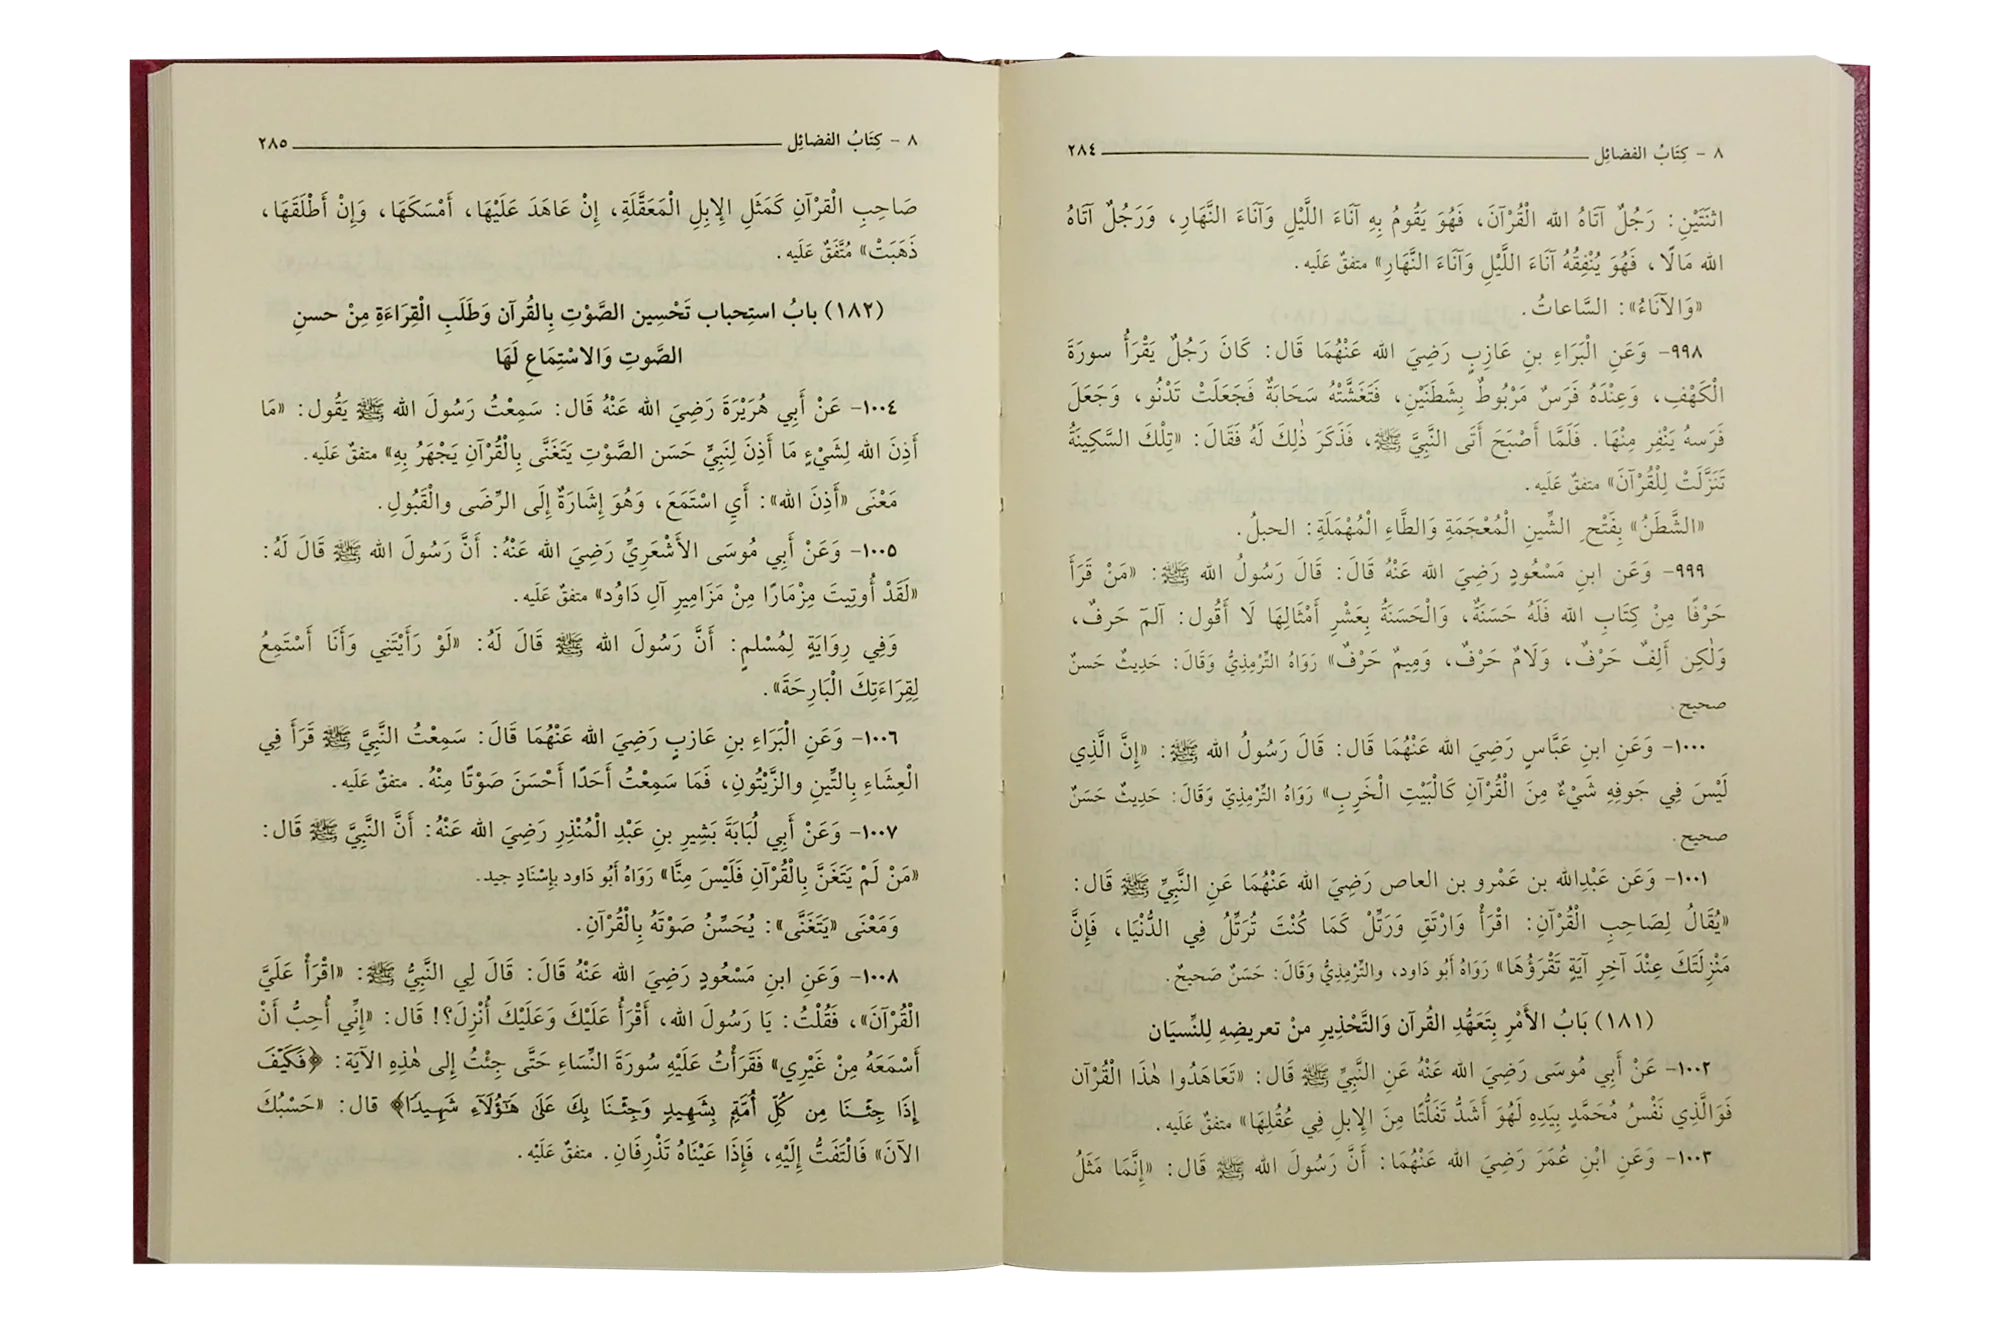 ٨ - كِتَابُ الفضائِل ٢٨٤
اثنَتَيْنِ: رَجُلٌ آتَاهُ الله الْقُرْآنَ، فَهُوَ يَقُومُ بِهِ آنَاءَ اللَّيْلِ وَآنَاءَ النَّهَارِ، وَرَجُلٌ آتَاهُ
الله مَالًا، فَهُوَ يُنْفِقُهُ آنَاءَ اللَّيْلِ وَآنَاءَ النَّهَارِ» متفقٌ عَلَيه.
«وَالآنَاءُ»: السَّاعاتُ.
٩٩٨- وَعَنِ الْبَرَاءِ بنِ عَازِبٍ رَضِيَ الله عَنْهُمَا قَال: كَانَ رَجُلٌ يَقْرَأُ سورَةَ
الْكَهْفِ، وَعِنْدَهُ فَرَسٌ مَرْبُوطٌ بِشَطَنَيْنِ، فَتَغَشَّتْهُ سَحَابَةٌ فَجَعَلَتْ تَدْنُو، وَجَعَلَ
فَرَسهُ يَنْفِر مِنْهَا. فَلَمَّا أَصْبَحَ أَتَى النَّبِيَّ ﷺ، فَذَكَرَ ذٰلِكَ لَهُ فَقَالَ: «تِلْكَ السَّكِينَةُ
تَنَزَّلَتْ لِلْقُرْآنَ» متفقٌ عَلَيه.
«الشَّطَنُ» بِفَتْحِ الشِّينِ الْمُعْجَمَةِ وَالطَّاءِ الْمُهْمَلَةِ: الحبلُ.
٩٩٩- وَعَن ابنِ مَسْعُودٍ رَضِيَ الله عَنْهُ قَالَ: قَالَ رَسُولُ الله ﷺ: «مَنْ قَرَأَ
حَرْفًا مِنْ كِتَابِ الله فَلَهُ حَسَنَةٌ، وَالْحَسَنَةُ بِعَشْرِ أَمْثَالِهَا لَا أَقُول: آلمٓ حَرفٌ،
وَلٰكِن أَلِفٌ حَرْفٌ، وَلَامٌ حَرْفٌ، وَمِيمٌ حَرْفٌ» رَوَاهُ التِّرْمِذِيُّ وَقَالَ: حَدِيثٌ حَسنٌ
صحيح.
١٠٠٠- وَعَنِ ابنِ عَبَّاسٍ رَضِيَ الله عَنْهُمَا قَال: قَالَ رَسُولُ الله ﷺ: «إِنَّ الَّذِي
لَيْسَ فِي جَوفِهِ شَيْءٌ مِنَ الْقُرْآنِ كَالْبَيْتِ الْخَرِبِ» رَوَاهُ التِّرْمِذِيّ وَقَالَ: حَدِيثٌ حَسَنٌ
صحيح.
١٠٠١- وَعَن عَبْدِالله بن عَمْرو بن العاص رَضِيَ الله عَنْهُمَا عَنِ النَّبِيِّ ﷺ قَال:
«يُقَالُ لِصَاحِبِ الْقُرْآنِ: اقْرَأْ وَارْتَقِ وَرَتِّلْ كَمَا كُنْتَ تُرَتِّلُ فِي الدُّنْيَا، فَإِنَّ
مَنْزِلَتَكَ عِنْدَ آخِرِ آيَةٍ تَقْرَؤُهَا» رَوَاهُ أَبُو دَاود، والتِّرْمِذِيُّ وَقَالَ: حَسَنٌ صَحيحٌ.
(١٨١) بَابُ الأَمْرِ بِتَعَهُّدِ القُرآن وَالتَّحْذِيرِ منْ تعريضِهِ لِلنِّسيَان
١٠٠٢- عَنْ أَبِي مُوسَى رَضِيَ الله عَنْهُ عَنِ النَّبِيِّ ﷺ قَال: «تَعَاهَدُوا هٰذَا الْقُرْآن
فَوَالَّذِي نَفْسُ مُحَمَّدٍ بِيَدِهِ لَهُوَ أَشَدُّ تَفَلُّتًا مِنَ الإِبلِ فِي عُقُلِهَا» متفقٌ عَلَيه.
١٠٠٣- وَعَنِ ابْنِ عُمَرَ رَضِيَ الله عَنْهُمَا: أَنَّ رَسُولَ الله ﷺ قَال: «إِنَّمَا مَثَلُ
٨ - كِتَابُ الفضائِل ٢٨٥
صَاحِبِ الْقرْآنِ كَمَثَلِ الإِبِلِ الْمَعَقَّلَةِ، إِنْ عَاهَدَ عَلَيْهَا، أَمْسَكَهَا، وَإِنْ أَطْلَقَهَا،
ذَهَبَتْ» مُتَّفَقٌ عَلَيه.
(١٨٢) بابُ استِحباب تَحْسِين الصَّوْتِ بِالقُرآن وَطَلَبِ الْقِرَاءَةِ مِنْ حسنِ
الصَّوتِ وَالاسْتِمَاعِ لَهَا
١٠٠٤- عَنْ أَبِي هُرَيْرَةَ رَضِيَ الله عَنْهُ قَال: سَمِعْتُ رَسُولَ الله ﷺ يَقُول: «مَا
أَذِنَ الله لِشَيْءٍ مَا أَذِنَ لِنَبِيٍّ حَسَن الصَّوْتِ يَتَغَنَّى بِالْقُرْآنِ يَجْهَرُ بِهِ» متفقٌ عَلَيه.
مَعْنَى «أَذِنَ الله»: أَيِ اسْتَمَعَ، وَهُوَ إِشَارَةٌ إِلَى الرِّضَى والْقَبُولِ.
١٠٠٥- وَعَنْ أَبِي مُوسَى الأَشْعَرِيِّ رَضِيَ الله عَنْهُ: أَنَّ رَسُولَ الله ﷺ قَالَ لَهُ:
«لَقَدْ أُوتِيتَ مِزْمَارًا مِنْ مَزَامِيرِ آلِ دَاوُد» متفقٌ عَلَيه.
وَفِي رِوَايَةٍ لِمُسْلمٍ: أَنَّ رَسُولَ الله ﷺ قَالَ لَهُ: «لَوْ رَأَيْتَنِي وَأَنَا أَسْتَمِعُ
لِقِرَاءَتِكَ الْبَارِحَةَ».
١٠٠٦- وَعَنِ الْبَرَاءِ بنِ عَازبٍ رَضِيَ الله عَنْهُمَا قَالَ: سَمِعْتُ النَّبِيَّ ﷺ قَرَأَ فِي
الْعِشَاءِ بِالتِّينِ والزَّيْتُونِ، فَمَا سَمِعْتُ أَحَدًا أَحْسَنَ صَوْتًا مِنْهُ. متفقٌ عَلَيه.
١٠٠٧- وَعَنْ أَبِي لُبَابَةَ بَشِيرِ بنِ عَبْدِ الْمُنْذِرِ رَضِيَ الله عَنْهُ: أَنَّ النَّبِيَّ ﷺ قَال:
«مَنْ لَمْ يَتَغَنَّ بِالْقُرْآنِ فَلَيْسَ مِنَّا» رَوَاهُ أَبُو دَاود بإِسْنَادٍ جيد.
وَمَعْنَى «يَتَغَنَّى»: يُحَسِّنُ صَوْتَهُ بِالْقُرْآنِ.
١٠٠٨- وَعَنِ ابنِ مَسْعُودٍ رَضِيَ الله عَنْهُ قَالَ: قَالَ لِي النَّبِيُّ ﷺ: «اقْرَأْ عَلَيَّ
الْقُرْآنَ»، فَقُلْتُ: يَا رَسُولَ الله، أَقْرَأُ عَلَيْكَ وَعَلَيْكَ أُنْزِلَ؟! قَال: «إِنِّي أُحِبُّ أَنْ
أَسْمَعَهُ مِنْ غَيْرِي» فَقَرَأْتُ عَلَيْهِ سُورَةَ النِّسَاءِ حَتَّى جِئْتُ إِلى هٰذِهِ الآيَة: ﴿فَكَيْفَ
إِذَا جِئْـنَا مِن كُلِّ أُمَّةِۭ بِشَهِيدٍ وَجِئْـنَا بِكَ عَلَىٰ هَـٰٓؤُلَآءِ شَهِيدًا﴾ قال: «حَسْبُكَ
الآنَ» فَالْتَفَتُّ إِلَيْهِ، فَإِذَا عَيْنَاهُ تَذْرِفَانِ. متفقٌ عَلَيْه.